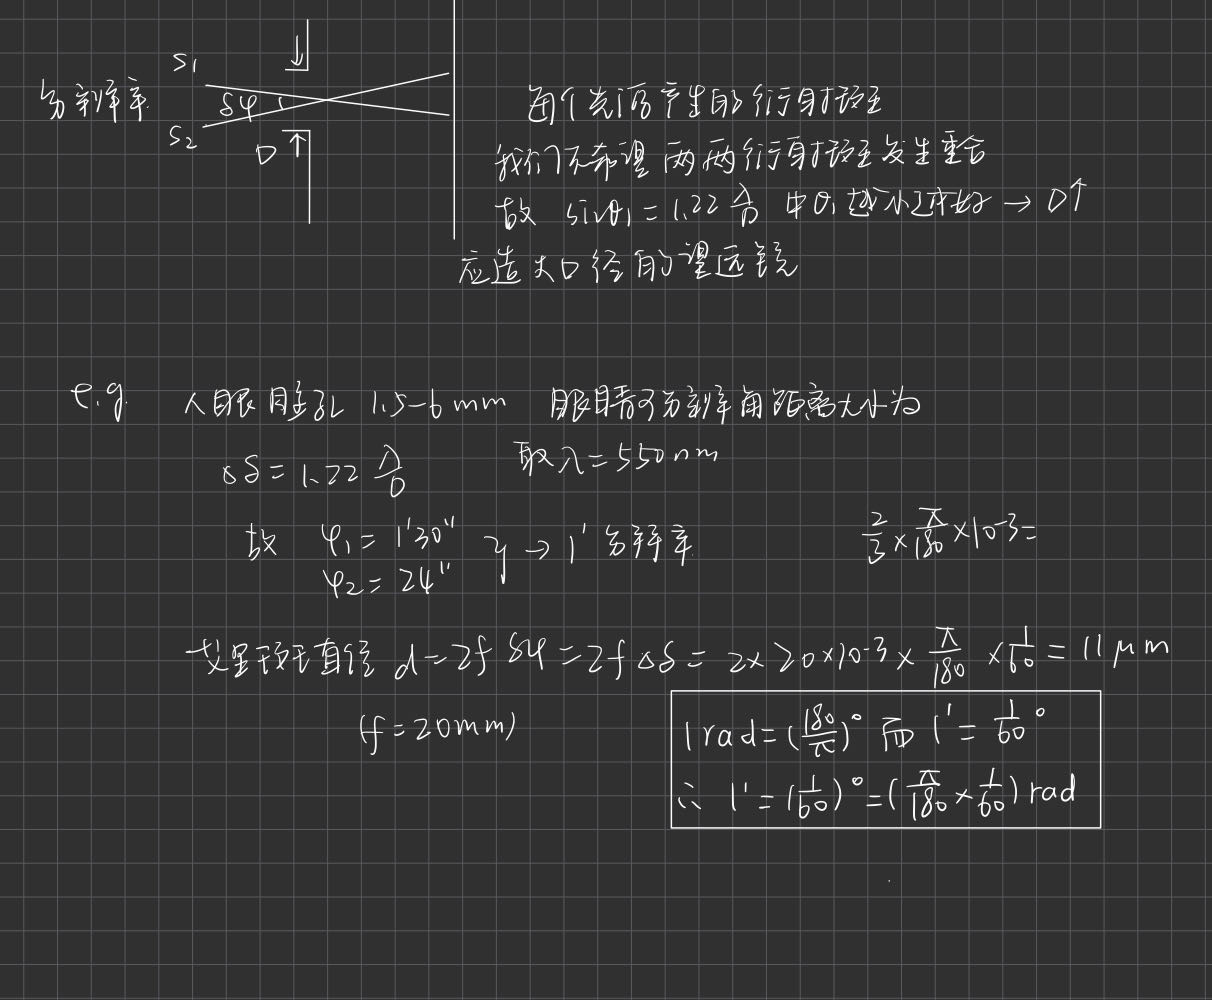 分辨率
S₁
S₂
δφ
D
每个光源产生的衍射斑
我们不希望两两衍射斑发生重合
故 sinθ₁ = 1.22 λ/D 中θ₁越小越好 → D↑
应造大口径的望远镜
e.g. 人眼瞳孔 1.5-6mm 眼睛可分辨角距离大小为
△δ = 1.22 λ/D 取λ=550nm
故 φ₁ = 1'30" } → 1' 分辨率
φ₂ = 24"
2/3 × π/180 × 10⁻³ =
艾里斑直径 d = 2f δφ = 2f △δ = 2×20×10⁻³ × π/180 × 1/60 = 11μm
(f = 20mm)
1rad = (180/π)° 而 1' = 1/60°
∴ 1' = (1/60)° = (π/180 × 1/60) rad